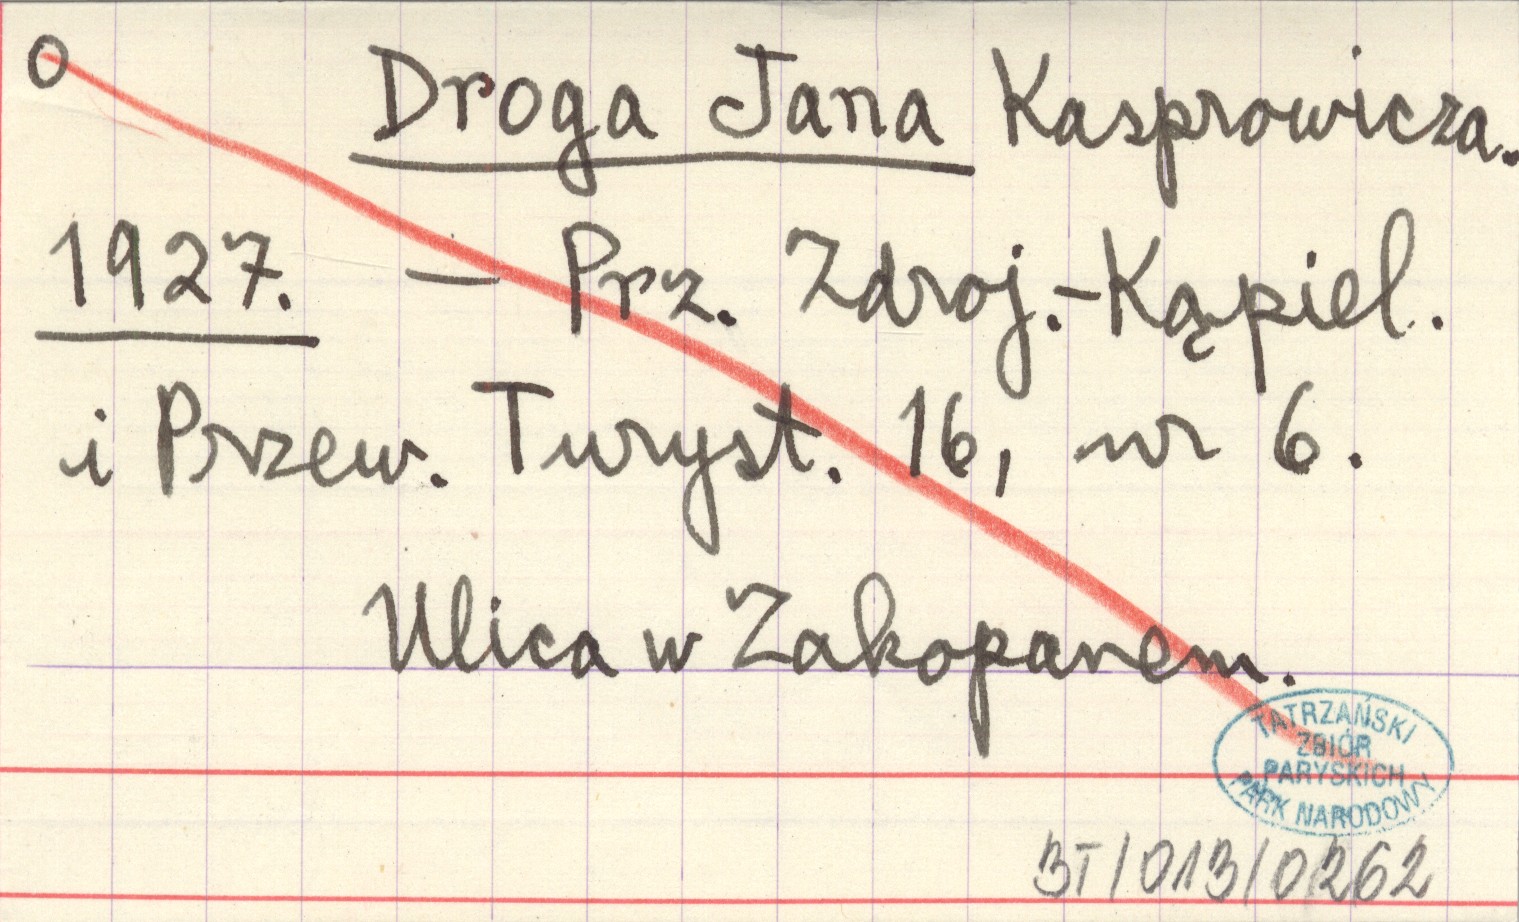 O Droga Jana Kasprowicza.
1927. – Prz. Zdroj.-Kąpiel.
i Przew. Turyst. 16, nr 6.
Ulica w Zakopanem.
TATRZAŃSKI
ZBIÓR
PARYSKICH
PARK NARODOWY
BT/013/0262